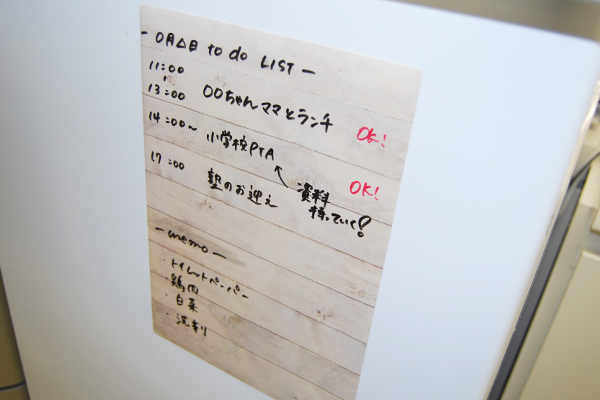 - 〇月△日 to do LIST -
11:00
13:00 〇〇ちゃんママとランチ OK!
14:00~ 小学校PTA OK!
資料
持っていく!
17:00 塾のお迎え
- memo -
・トイレットペーパー
・鶏肉
・白菜
・洗剤